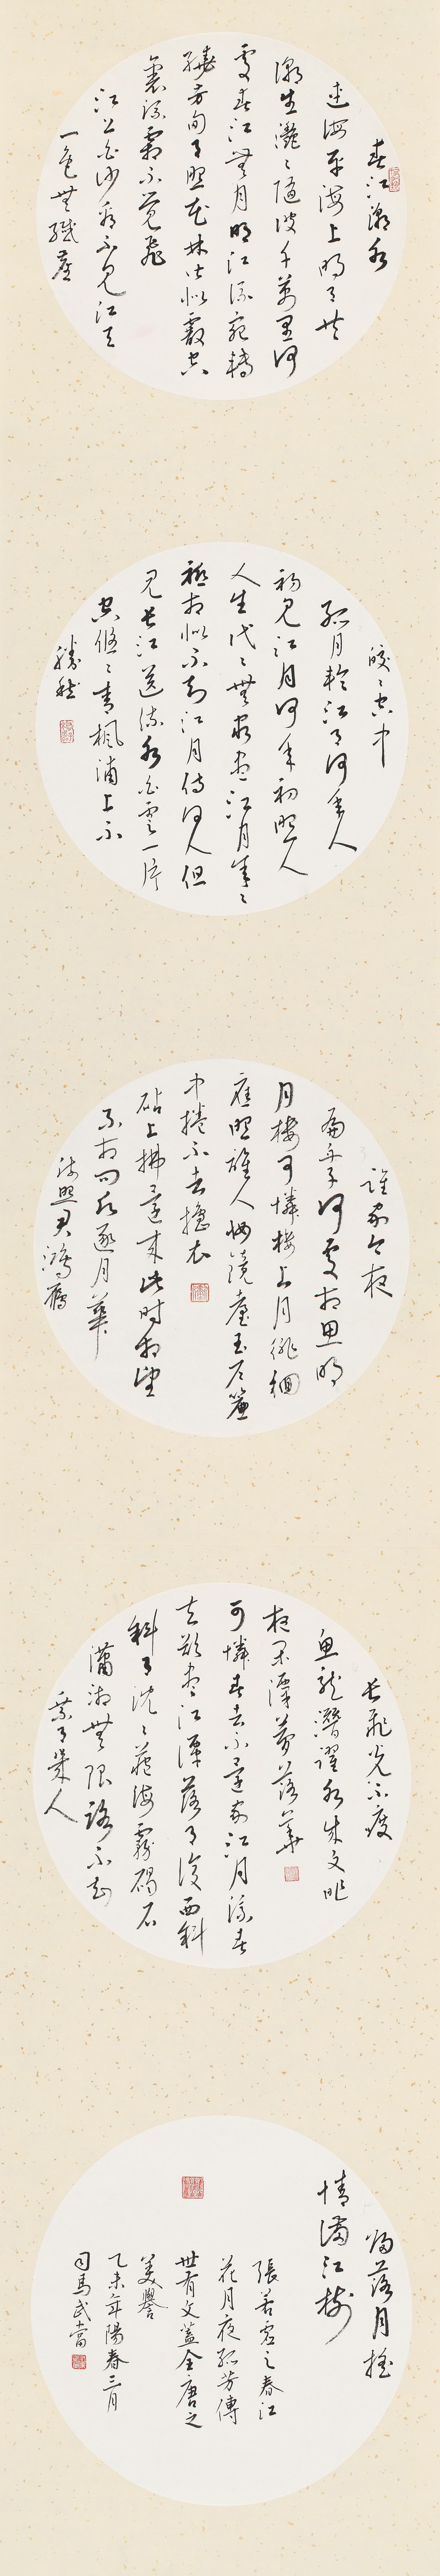 春江潮水
連海平海上明月共
潮生灧々隨波千萬里何
處春江無月明江流宛轉
繞芳甸月照花林皆似霰空
裏流霜不覺飛
江上白沙看不見江天
一色無纖塵
皎々空中
孤月輪江月何年人
初見江月何年初照人
人生代々無窮盡江月年々
祗相似不知江月待何人但
見長江送流水白雲一片
空悠々青楓浦上不
勝愁
誰家今夜
扁舟子何處相思明
月樓可憐樓上月徘徊
應照離人妝鏡臺玉戶簾
中捲不去擣衣
砧上拂還來此時相望
不相聞願逐月華
流照君鴻雁
長飛光不度
魚龍潛躍水成文昨
夜閑潭夢落華
可憐春去不還家江月流春
去欲盡江潭落月復西斜
斜月沉々藏海霧碣石
瀟湘無限路不知
乘月幾人
歸落月搖
情滿江樹
張若虛之春江
花月夜孤芳傳
世有文蓋全唐之
美譽
乙未年陽春三月
司馬武當